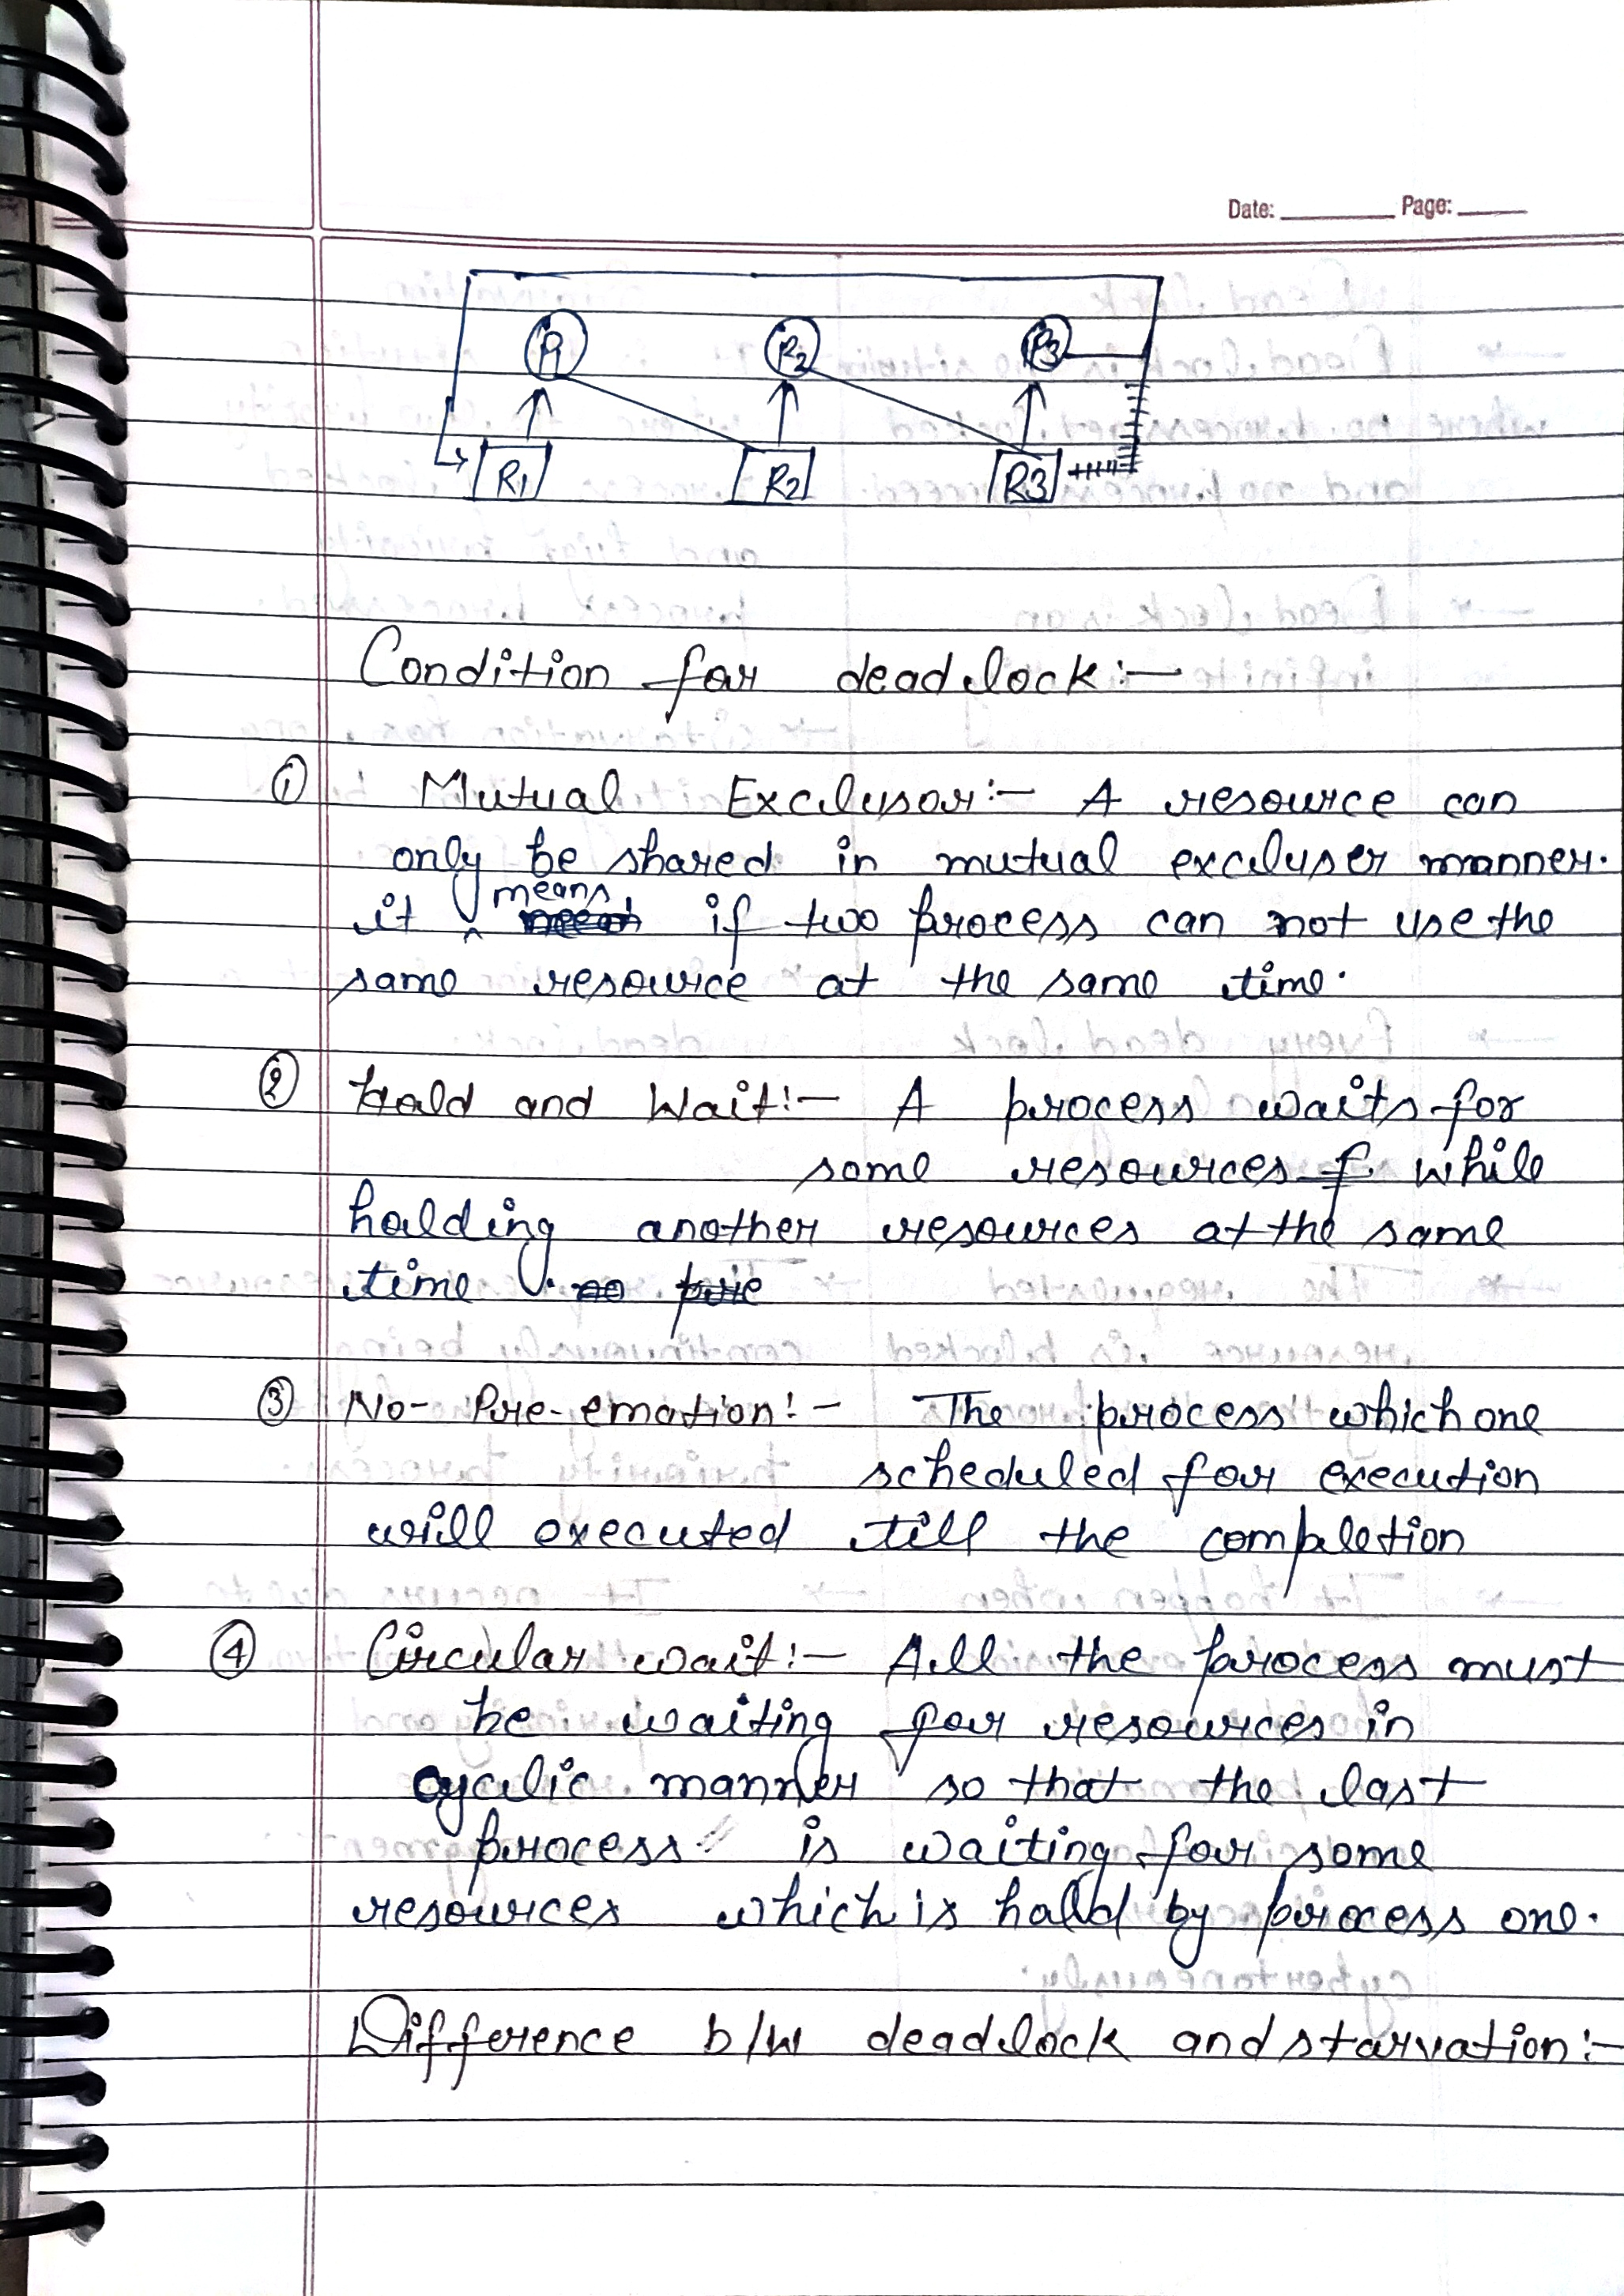 Date: Page:
P1 P2 P3
R1 R2 R3
Condition for deadlock:-
① Mutual Exclusor:- A resource can
only be shared in mutual excluser manner.
it means if two process can not use the
same resource at the same time.
② Hold and Wait:- A process waits for
some resources while
holding another resources at the same
time.
③ No- Pre-emation:- The process which one
scheduled for execution
will executed till the completion
④ Circular wait:- All the process must
be waiting for resources in
cyclic manner so that the last
process is waiting for some
resources which is hold by process one.
Difference b/w deadlock and starvation:-